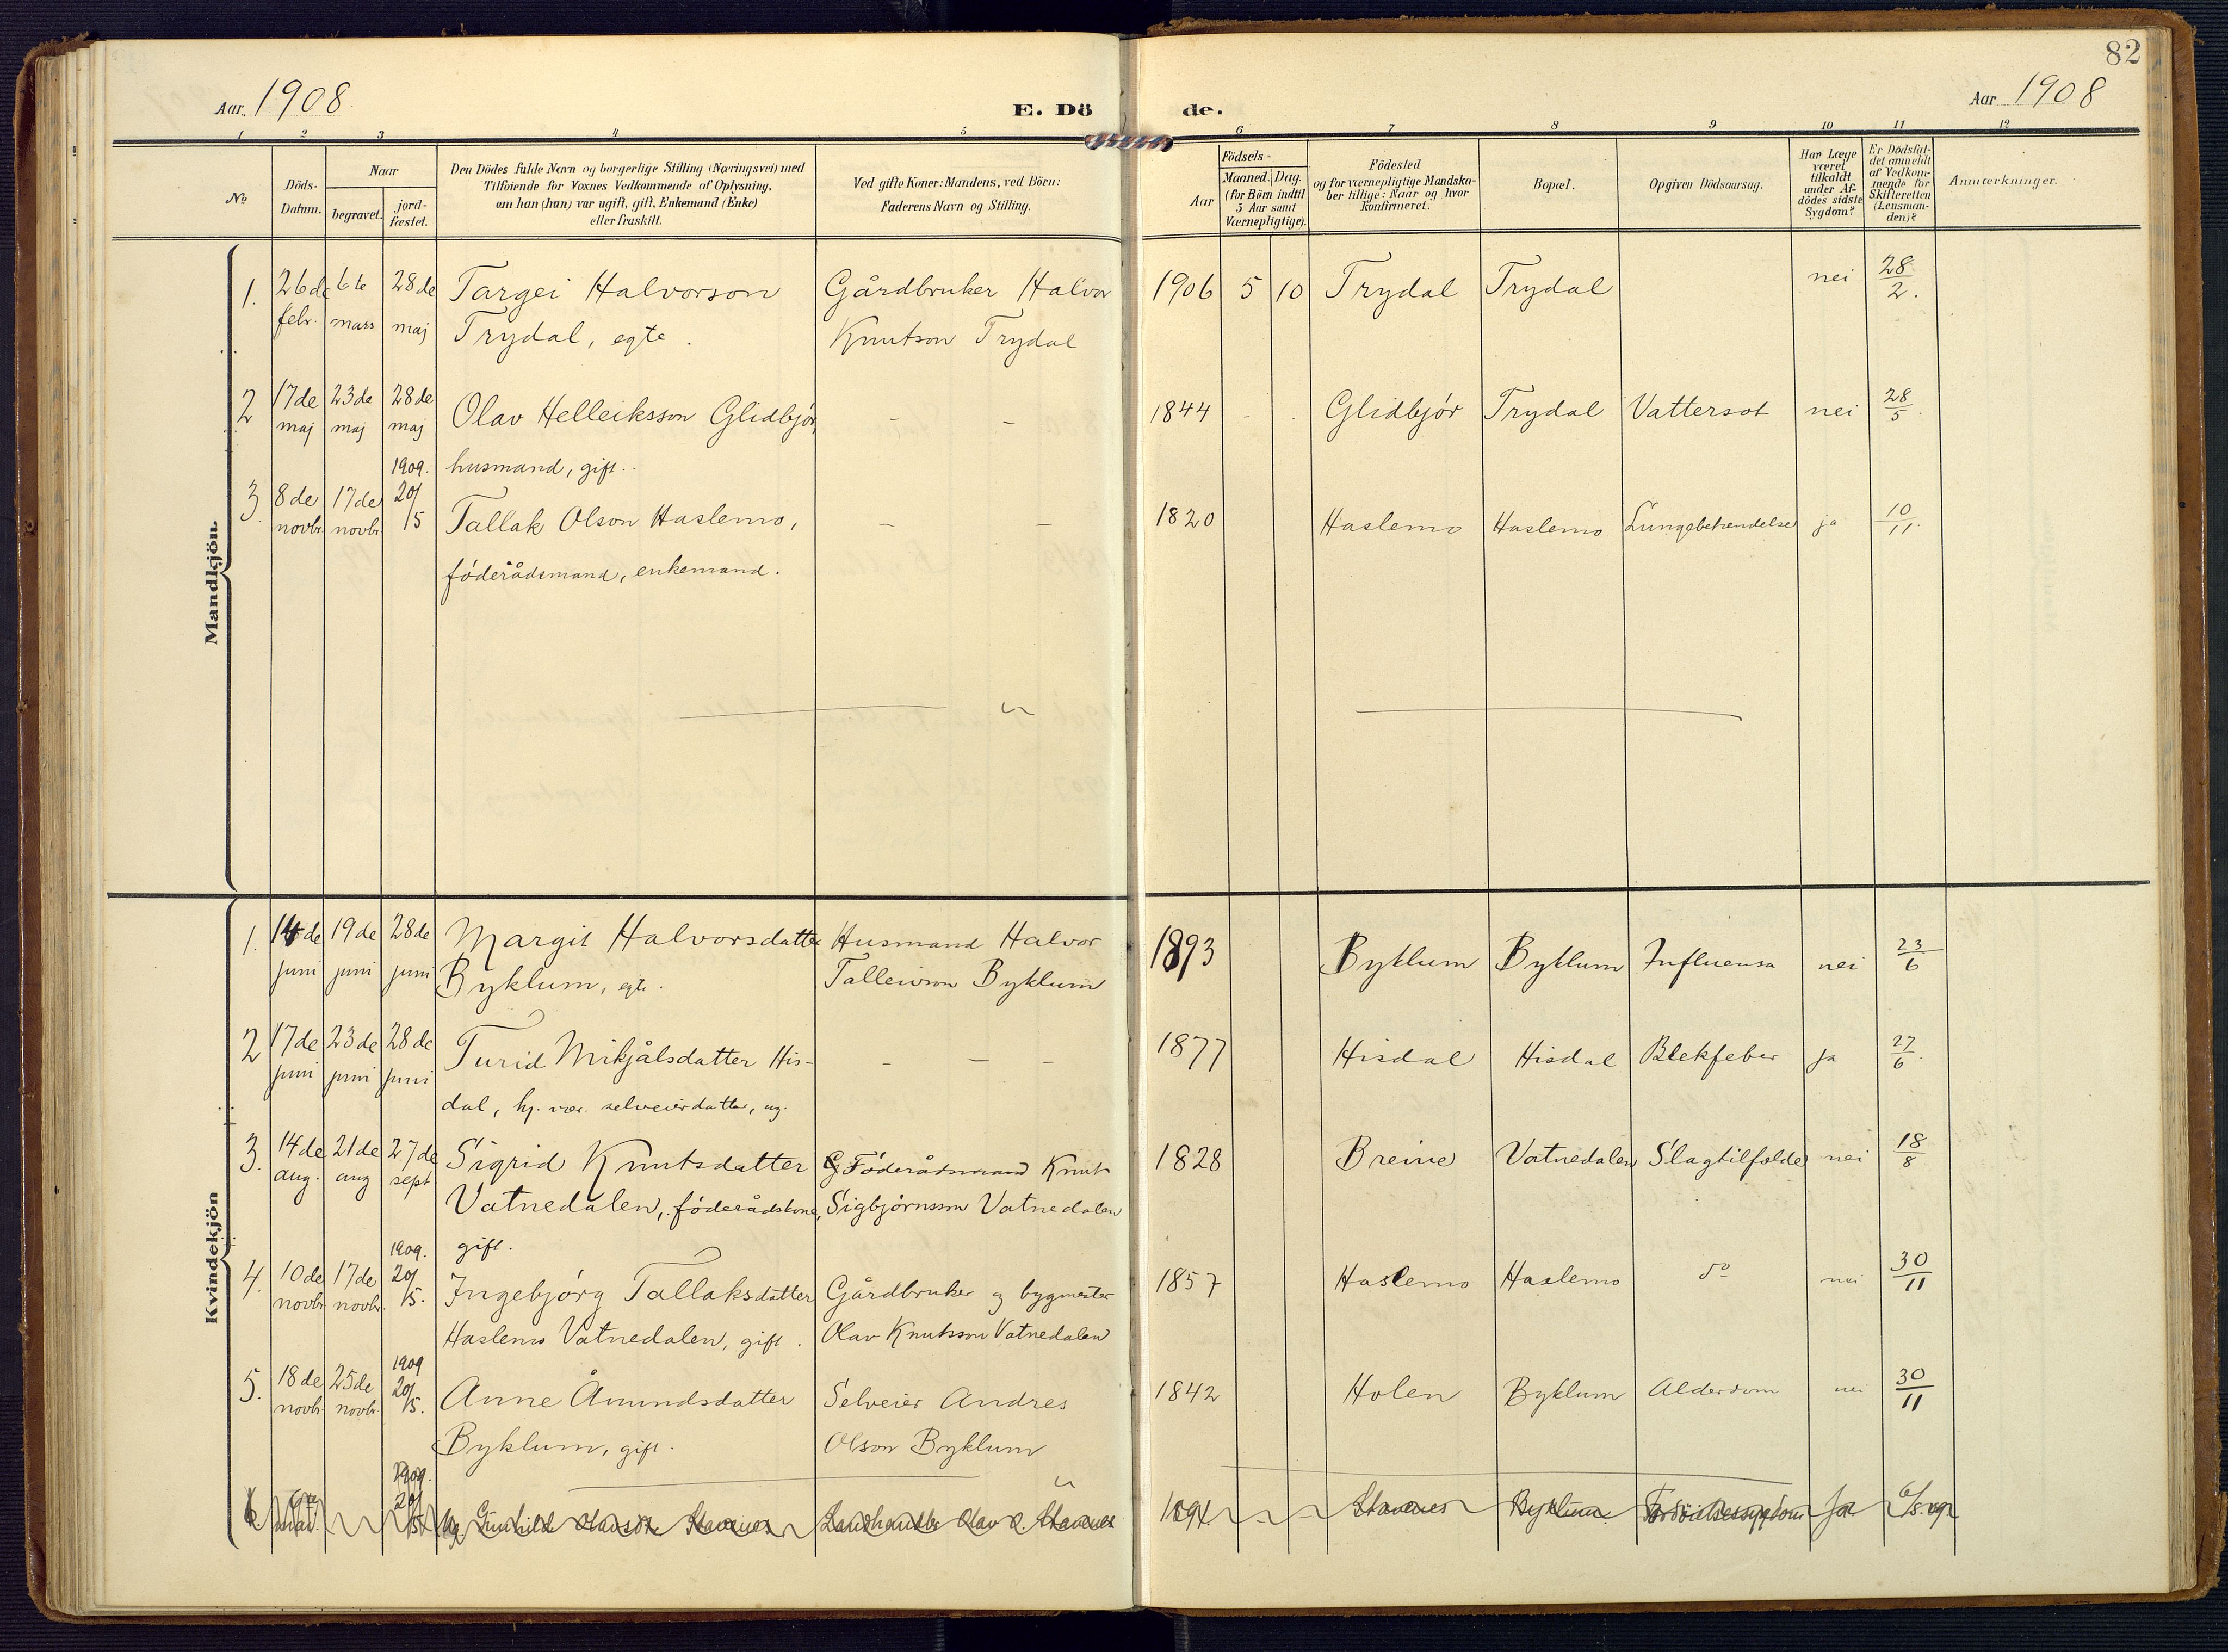 82
Aar. 1908.
E. Döde.
Aar 1908
1 2 3 4 5 6 7 8 9 10 11 12
No
Döds-
Datum.
Naar
begravet.
jord-
fæstet.
Den Dödes fulde Navn og borgerlige Stilling (Næringsvei) med
Tilföiende for Voxnes Vedkommende af Oplysning,
om han (hun) var ugift, gift, Enkemand (Enke)
eller fraskilt.
Ved gifte Koner: Mandens, ved Börn:
Faderens Navn og Stilling.
Födsels-
Aar
Maaned. Dag.
(for Börn indtil
5 Aar samt
Værnepligtige).
Födested
og for værnepligtige Mandska-
ber tillige: Naar og hvor
konfirmeret.
Bopæl.
Opgiven Dödsaarsag.
Har Læge
været
tilkaldt
under Af-
dödes sidste
Sygdom?
Er Dödsfal-
det anmeldt
af Vedkom-
mende for
Skifteretten
(Lensman-
den)?
Anmærkninger.
Mandkjön.
1. 26de 6te 28de Targei Halvorson Gårdbruker Halvor 1906 5 10 Trydal Trydal nei 28/2.
febr. mars maj Trydal, egte. Knutson Trydal
2 17de 23de 28de Olav Helleiksson Glidbjør, - - 1844 - . Glidbjør Trydal Vattersot nei 28/5.
maj maj maj
1909. husmand, gift.
3. 8de 17de 20/5 Tallak Olson Haslemo, - - 1820 Haslemo Haslemo Lungebetændelse ja 10/11.
novbr. novbr.
föderådsmand, enkemand.
Kvindekjön
1. 14de 19de 28de Margit Halvorsdatter Husmand Halvor 1893 Byklum Byklum Influensa nei 23/6
juni juni juni Byklum, egte. Talleivson Byklum
2 17de 23de 28de Turid Mikjålsdatter His- - - - 1877 Hisdal Hisdal Blekfeber ja 27/6.
juni juni juni
dal, hj. vær. selveierdatter, ug.
3. 14de 21de 27de Sigrid Knutsdatter Föderådsmand Knut 1828 Breive Vatnedalen Slagtilfælde nei 18/8
aug. aug sept Vatnedalen, föderådskone, Sigbjørnsson Vatnedalen
1909. gift.
4. 10de 17de 20/5. Ingebjørg Tallaksdatter Gårdbruker og bygmester 1857 Haslemo Haslemo do nei 30/11
novbr. novbr. Haslemo Vatnedalen, gift. Olav Knutsson Vatnedalen
1909
5. 18de 25de 20/5. Anne Åmundsdatter Selveier Andres 1842 Holen Byklum Alderdom nei 30/11
novbr. novbr. Byklum, gift. Olson Byklum
1909.
6 6te 20/5 Gunhild Olavsdtr Stavenes Landhandler Olav O. Stavenes Stavenes Byklum ja
mai